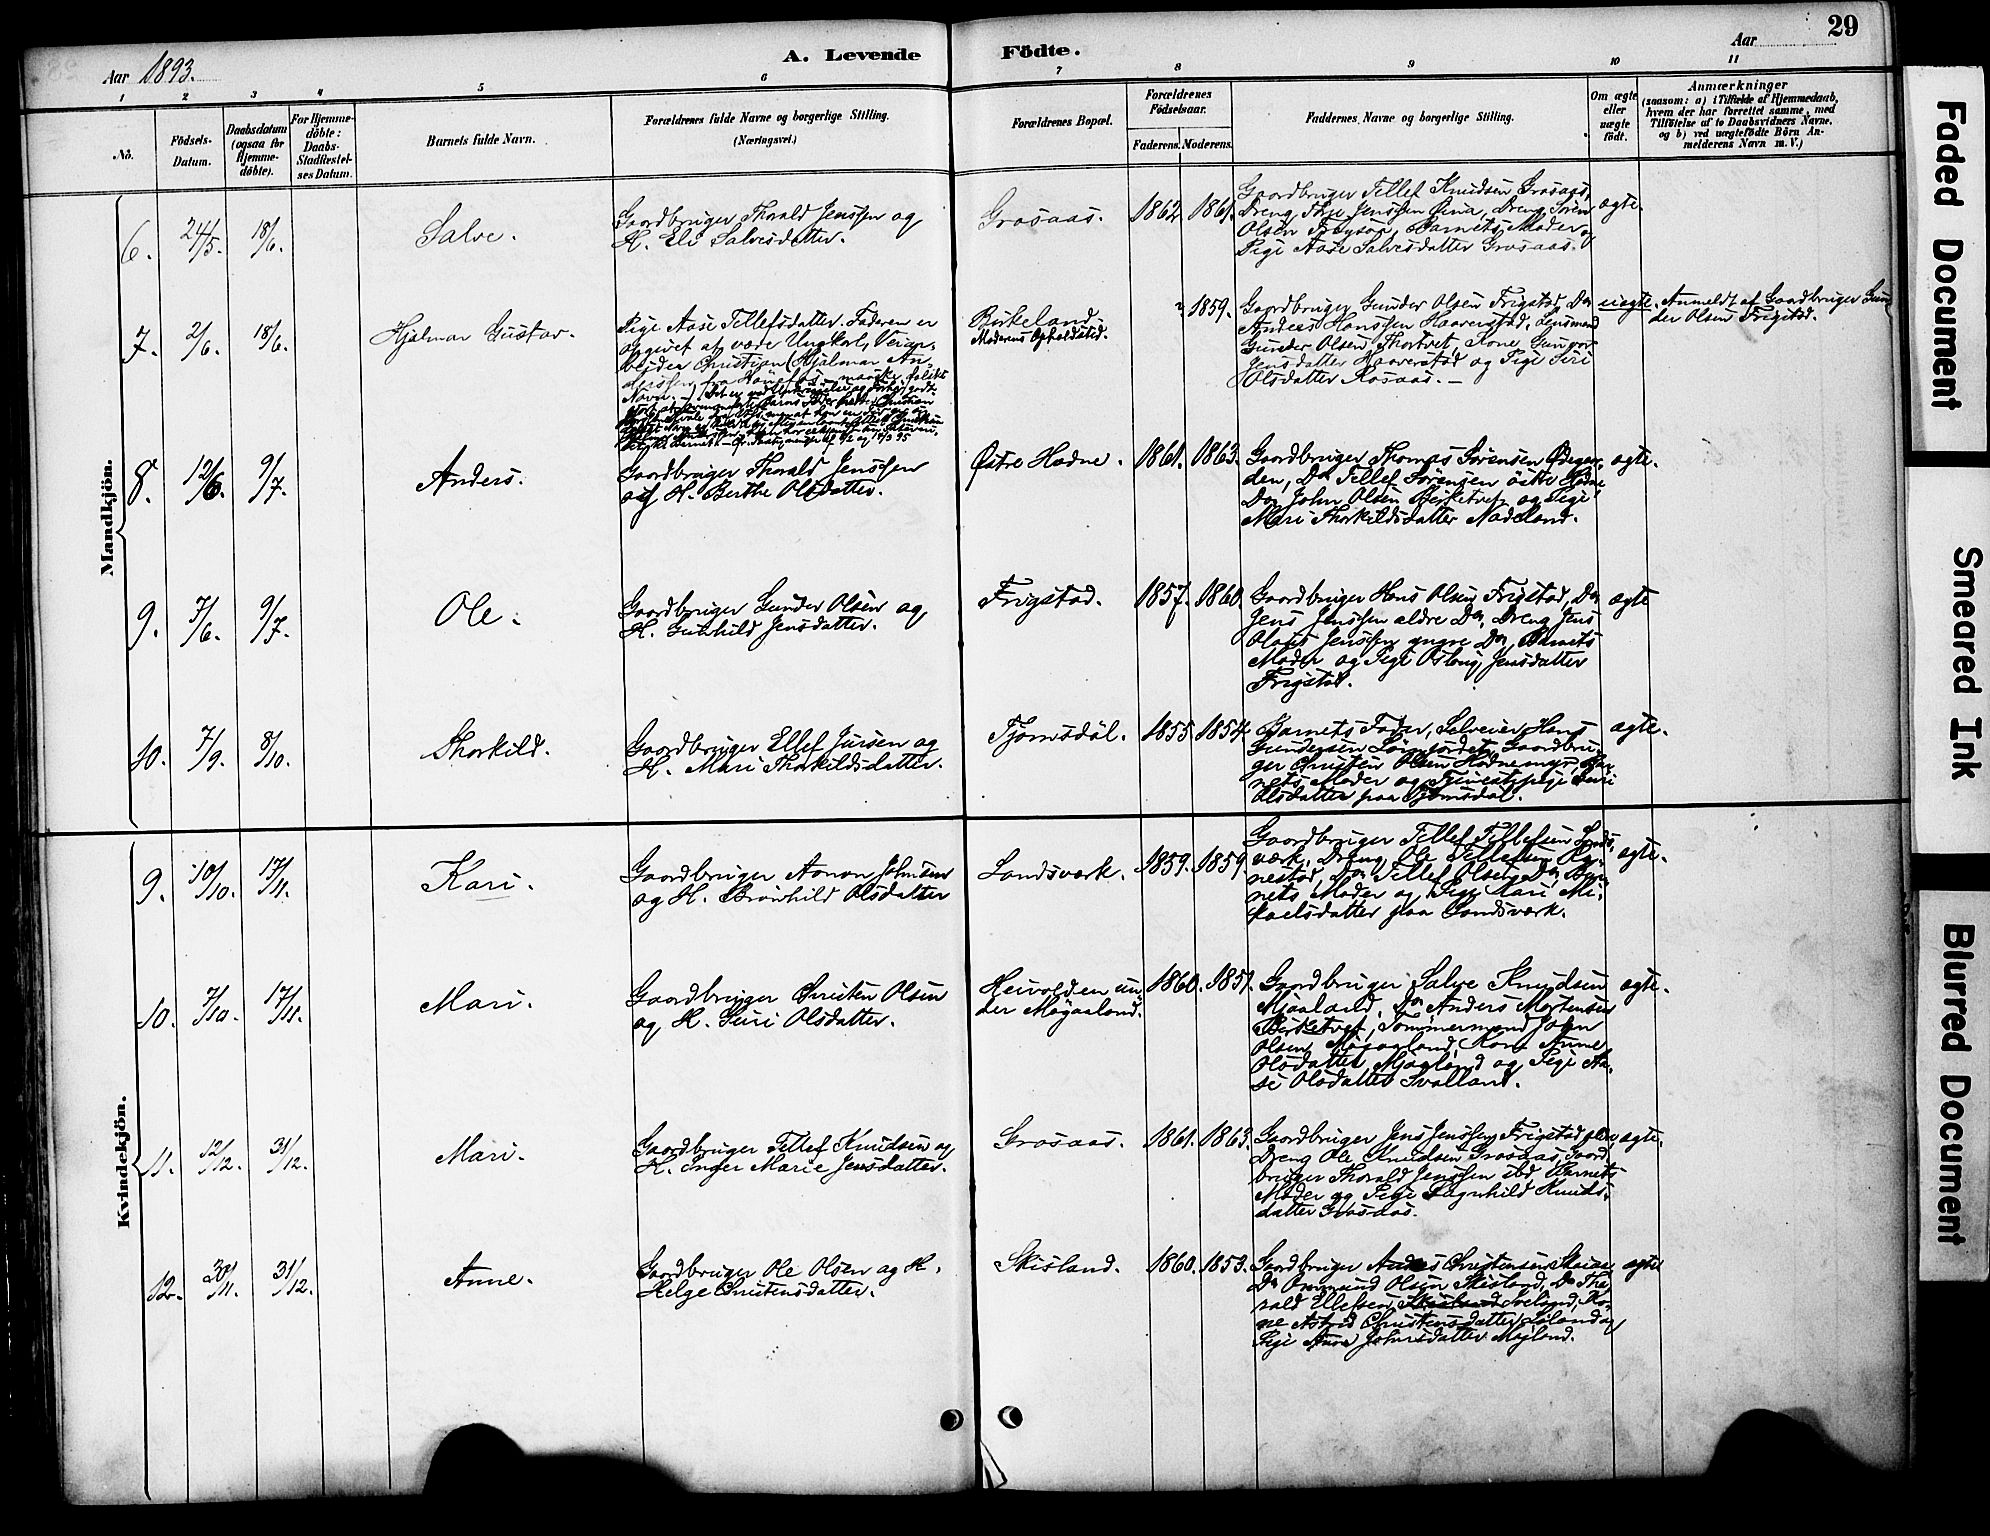 29
Aar 1893.
A. Levende Födte.
Aar
1 2 3 4 5 6 7 8 9 10 11
No.
Födsels-
Datum.
Daabsdatum
(ogsaa for
Hjemme-
döbte).
For Hjemme-
döbte:
Daabs-
Stadfæstel-
ses Datum.
Barnets fulde Navn.
Forældrenes fulde Navne og borgerlige Stilling.
(Næringsvei.)
Forældrenes Bopæl.
Forældrenes
Födselsaar.
Faderens. Moderens.
Faddernes Navne og borgerlige Stilling.
Om ægte
eller
uægte
födt.
Anmærkninger
(saasom: a) i Tilfælde af Hjemmedaab,
hvem der har forrettet samme, med
Tilföielse af to Daabsvidners Navne,
og b) ved uægtefödte Börn An-
melderens Navn m. V.)
Mandkjön.
6. 24/5. 18/6. Salve.
Gaardbruger Thorald Jenssen og
H. Eli Salvesdatter.
Grosaas. 1862. 1861.
Gaardbruger Tellef Knudsen Grosaas,
Dreng Terje Jenssen Dreng Søren
Olsen Barnets Moder og
Pige Aase Salvesdatter Grosaas.
ægte.
7. 2/6. 18/6. Hjalmar Gustav.
Pige Aase Tellefsdatter. Faderen er
opgivet at være Ungkarl,
Christian (Hjalmar An-
derssen fra Hönefos - maaske falskt
Navn. -)
Birkeland.
Moderens Opholdssted.
1859.
Gaardbruger Gunder Olsen Frigstad, Do
Anders Hanssen Haaverstad, Lensmand
Gunder Olsen Thortvet, Kone Gunvor
Jensdatter Haaverstad og Pige Siri
Olsdatter Rosaas. -
uægte. Anmeldt af Gaardbruger Gun-
der Olsen Frigstad.
8. 12/6. 9/7. Anders.
Gaardbruger Thorald Jenssen
og H. Berthe Olsdatter.
Østre Hodne. 1861. 1863.
Gaardbruger Thomas Sørensen Ødegaar-
den, Do Tellef Sørensen östre Hodne,
Do John Olsen Birketvet og Pige
Mari Thorkildsdatter Nadeland.
ægte.
9. 7/6. 9/7. Ole.
Gaardbruger Gunder Olsen og
H. Gunhild Jensdatter.
Frigstad. 1857. 1860.
Gaardbruger Hans Olsen Frigstad, Do
Jens Jenssen ældre Do, Dreng Jens
Olaus Jenssen yngre Do, Barnets
Moder og Pige Osloug Jensdatter
Frigstad.
ægte
10. 7/9. 8/10. Thorkild.
Gaardbruger Ellef Jursen og
H. Mari Thorkildsdatter.
Tjomsdål. 1855. 1854.
Barnets Fader, Selveier Hans
Gundersen Gaardbru-
ger Christen Olsen Hodnemyr, Bar-
nets Moder og Tjenestepige Siri
Olsdatter paa Tjomsdål.
ægte.
Kvindekjön.
9. 10/10. 17/11. Kari.
Gaardbruger Aanon Johnsen
og H. Brönhild Olsdatter
Landsverk. 1859. 1859.
Gaardbruger Tellef Tellefsen Lands-
værk, Dreng Ole Tellefsen Rø-
nestad, Do Tellef Olsen Do, Bar-
nets Moder og Pige Kari Mi-
kaelsdatter paa Landsværk.
ægte.
10. 7/10. 17/11. Mari.
Gaardbruger Christen Olsen
og H. Siri Olsdatter.
Heivolden un-
der Møgaaland.
1860. 1851.
Gaardbruger Salve Knudsen
Mjaaland, Do Anders Mortensen
Birketvet, Tømmermand John
Olsen Møgaaland, Kone Anne
Olsdatter Mjaaland og Pige Aa-
se Olsdatter Svalland.
ægte.
11. 12/12. 31/12. Mari.
Gaardbruger Tellef Knudsen og
H. Inger Marie Jensdatter.
Grosaas. 1861. 1863.
Gaardbruger Jens Jenssen Frigstad,
Dreng Ole Knudsen Grosaas, Gaard-
bruger Thorald Jenssen ibd, Barnets
Moder og Pige Ragnhild Knuds-
datter Grosaas.
ægte.
12. 30/11. 31/12. Anne.
Gaardbruger Ole Olsen og H.
Helge Christensdatter.
Skisland. 1860. 1853.
Gaardbruger Anders Christensen
Do Olsen Skisland, Do Tho-
rald Ellefsen Ko-
ne Astrid Christensdatter og
Pige Anne Johnsdatter Mejland.
ægte
Faded Document
Smeared Ink
Blurred Document